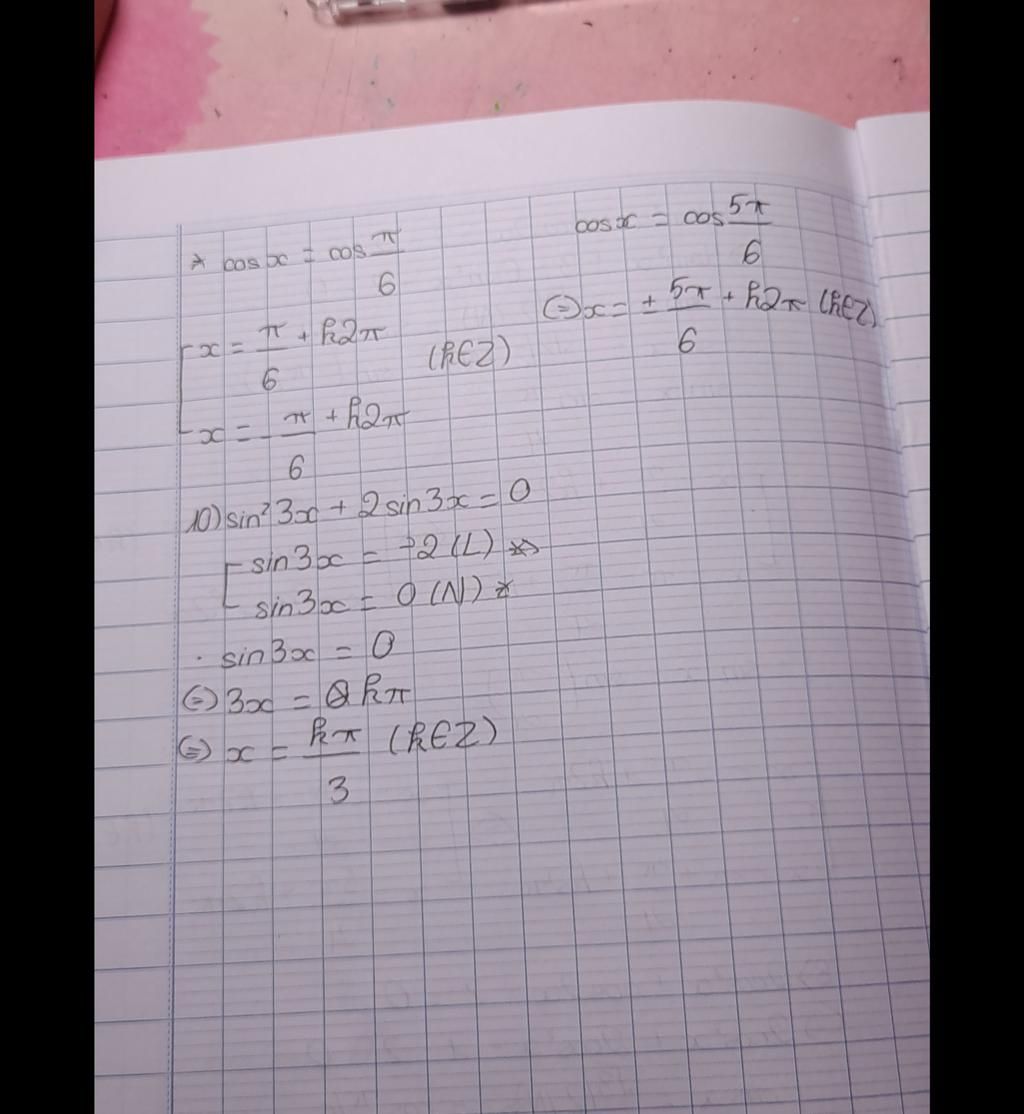 * cos x = cos π/6
[ x = π/6 + k2π
(k∈Z)
x = -π/6 + k2π
cos x = cos 5π/6
(=) x = ± 5π/6 + k2π (k∈Z)
10) sin² 3x + 2 sin 3x = 0
[ sin 3x = -2 (L)
sin 3x = 0 (N) *
· sin 3x = 0
(=) 3x = kπ
(=) x = kπ/3 (k∈Z)